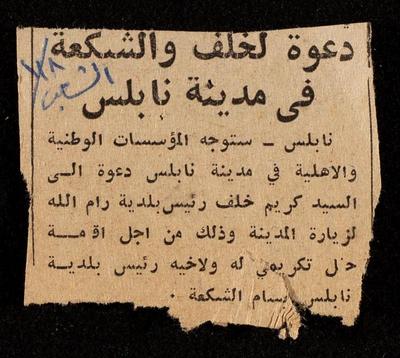 دعوة لخلف والشكعة
في مدينة نابلس
الشعب
نابلس ــ ستوجه المؤسسات الوطنية
والاهلية في مدينة نابلس دعوة الى
السيد كريم خلف رئيس بلدية رام الله
لزيارة المدينة وذلك من اجل اقامة
حفل تكريمي له ولاخيه رئيس بلدية
نابلس بسام الشكعة ٠